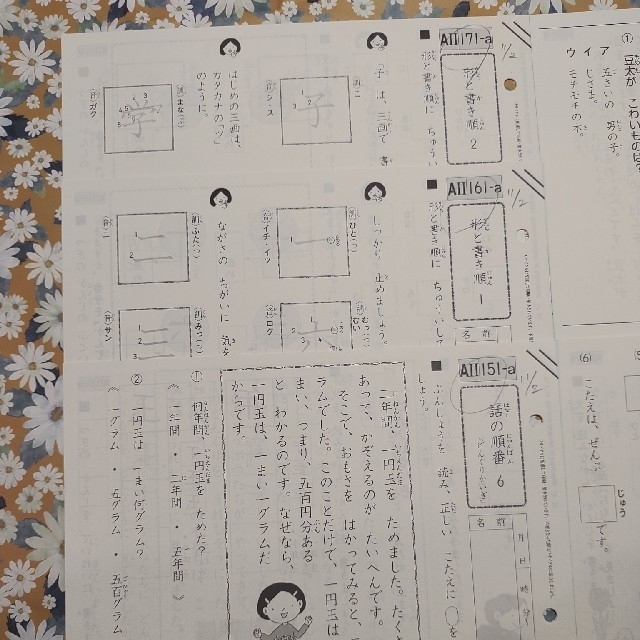 AⅡ171-a
11/2
形と書き順 2
形と書き順に ちゅうい
「子」は、三画で 書
訓 こ
子
音 シ・ス
はじめの三画は、
カタカナの「ツ」
のように。
訓 まな(ぶ)
学
音 ガク
AⅡ161-a
11/2
形と書き順 1
名前
形と書き順に ちゅういして
しっかり 止めましょう。
訓 ひと(つ)
一
音 イチ・イツ
訓 むっ(つ)
六
音 ロク
ながさの ちがいに 気を
訓 ふた(つ)
二
音 ニ
訓 みっ(つ)
三
音 サン
AⅡ151-a
11/2
話の順番 6
名前
月 日
時 分
ぶんしょうを 読み、正しい こたえに ○
しょう。
二年間、一円玉を ためました。たく
あって、かぞえるのが たいへんです。
そこで、おもさを はかってみると、
ラムでした。このことだけで、一円玉は
まい、つまり、五百円分ある
と わかるのです。なぜなら、
一円玉は、一まい一グラムだ
からです。
① 何年間、一円玉を ためた?
《 一年間 ・ 二年間 ・ 五年間 》
② 一円玉は 一まい何グラム?
《 一グラム ・ 五グラム ・ 五百グラム
① 豆太が こわいものは?
ア 五さいの 男の子。
イ じさま。
ウ モチモチの木。
(6)
こたえは、ぜんぶ
じゅう
です。